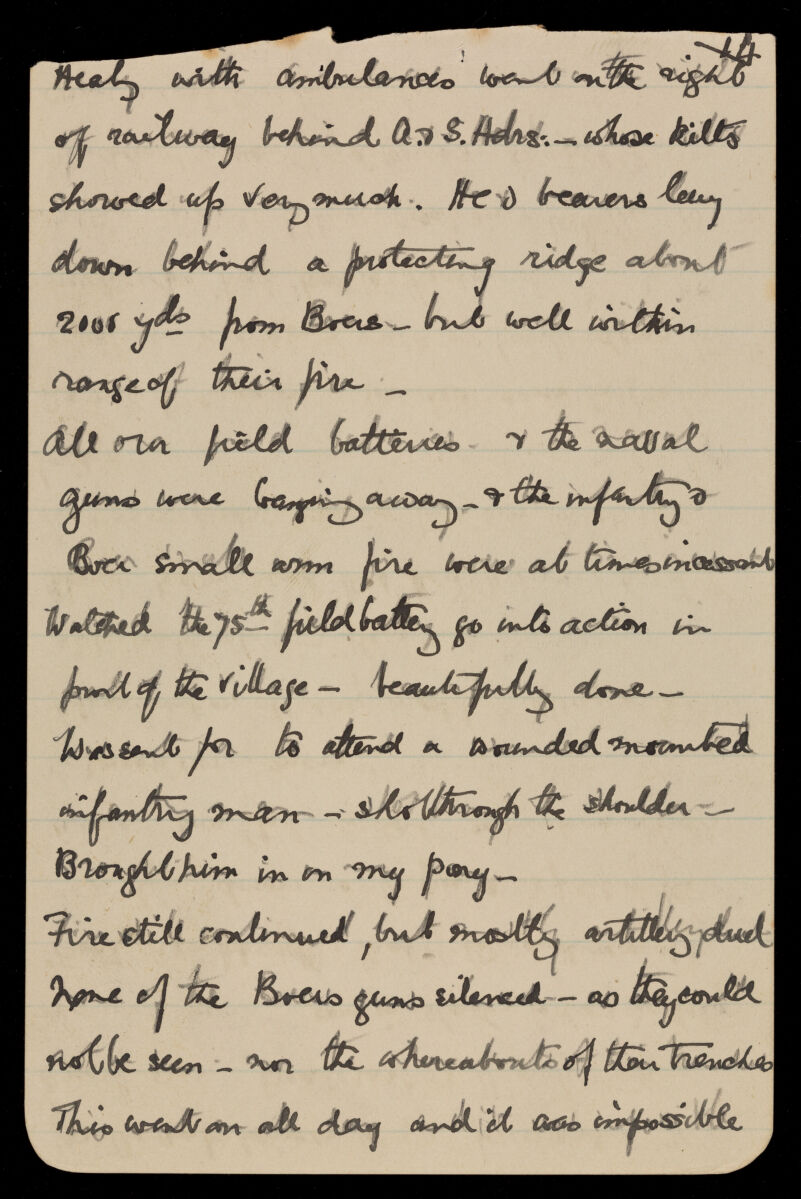 14
Healy with ambulances went on the right
of railway behind A. & S. Hdrs: – whose kilts
showed up very much. He & bearers lay
down behind a protecting ridge about
2000 yds from Boers – but well within
range of their fire –
All our field batteries & the naval
guns were banging away – & the infantry &
Boer small arm fire were at times incessant
Watched the 75th field battery go into action in
front of the village – beautifully done –
Was sent for to attend a wounded mounted
infantry man – shot through the shoulder –
Brought him in on my pony –
Fire still continued, but mostly artillery duel
None of the Boers guns silenced – as they could
not be seen – nor the whereabouts of their trenches
This went on all day and it was impossible